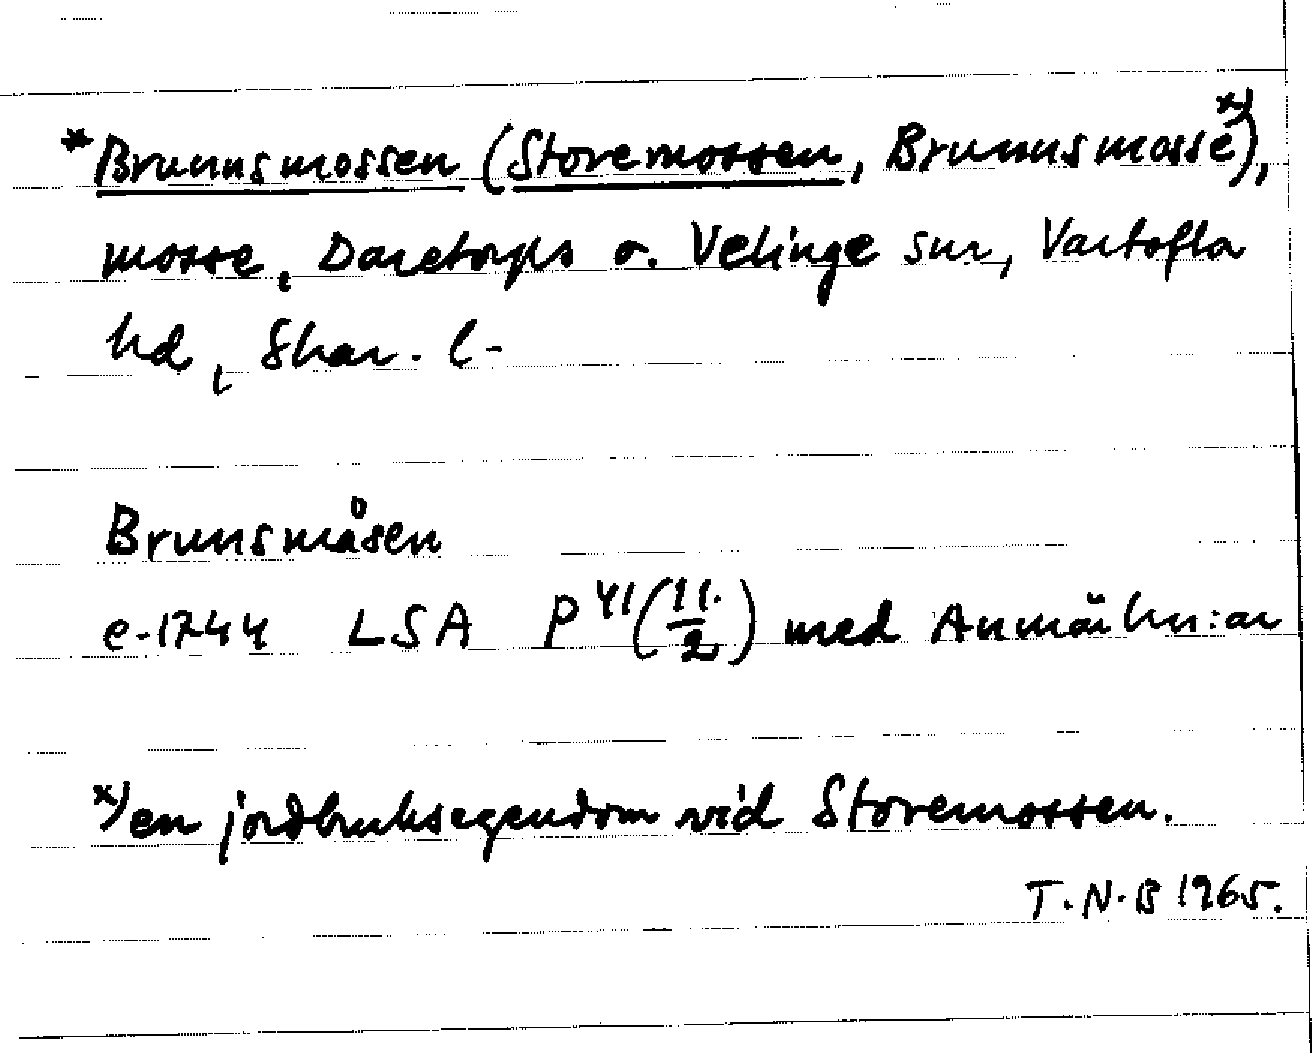 *Brunnsmossen (Storemossen, Brunnsmosse x)),
mosse, Daretorps o. Velinge snr, Vartofta
hd, Skar. l.
Brunsmåsen
c. 1744 LSA P 41 (11./2) med Anmärkn:ar
x) en jordbruksegendom vid Storemossen.
T.N.B 1965.